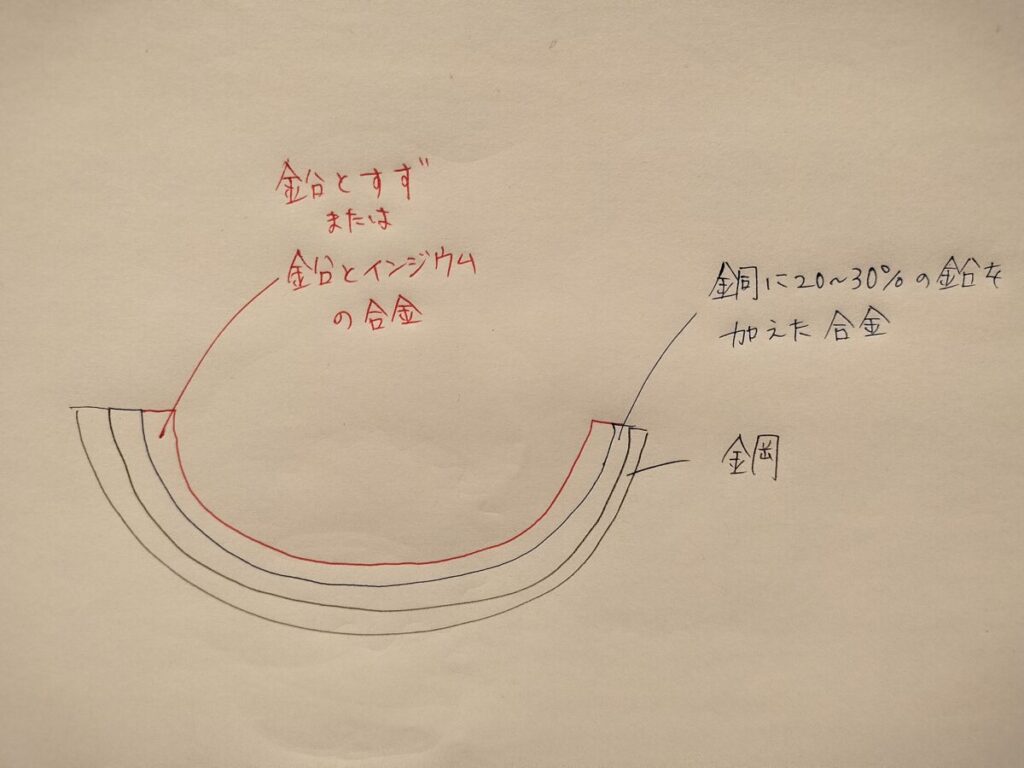 鉛とすず
または
鉛とインジウム
の合金
銅に20~30%の鉛を
加えた合金
鋼